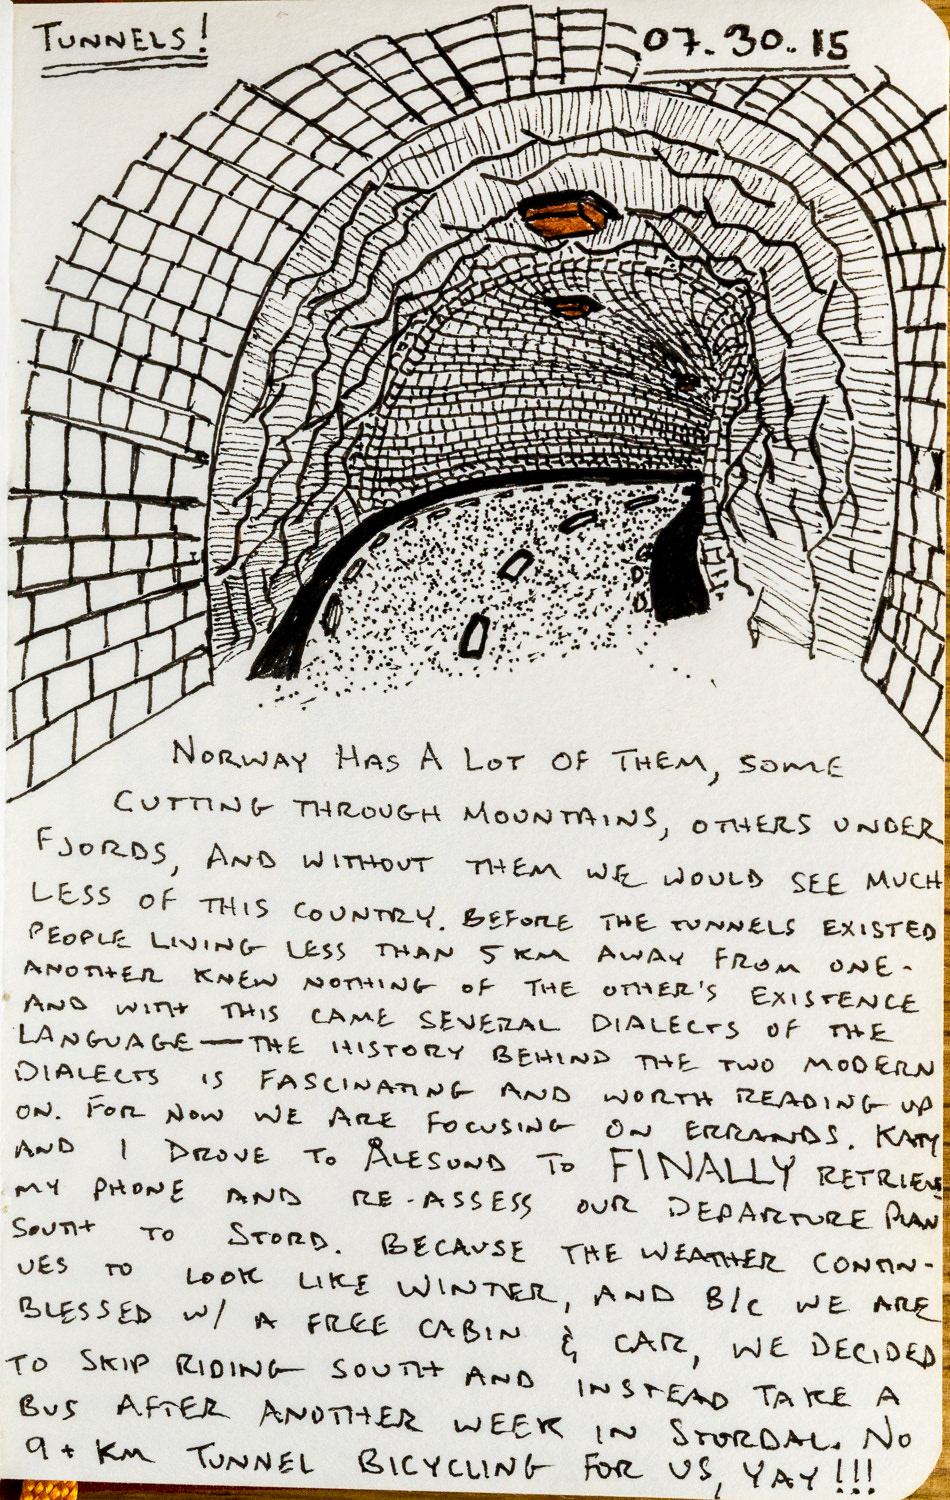 TUNNELS!
07.30.15
NORWAY HAS A LOT OF THEM, SOME
CUTTING THROUGH MOUNTAINS, OTHERS UNDER
FJORDS, AND WITHOUT THEM WE WOULD SEE MUCH
LESS OF THIS COUNTRY. BEFORE THE TUNNELS EXISTED
PEOPLE LIVING LESS THAN 5 KM AWAY FROM ONE-
ANOTHER KNEW NOTHING OF THE OTHER'S EXISTENCE
AND WITH THIS CAME SEVERAL DIALECTS OF THE
LANGUAGE—THE HISTORY BEHIND THE TWO MODERN
DIALECTS IS FASCINATING AND WORTH READING UP
ON. FOR NOW WE ARE FOCUSING ON ERRANDS. KATY
AND I DROVE TO ÅLESUND TO FINALLY RETRIEVE
MY PHONE AND RE-ASSESS OUR DEPARTURE PLAN
SOUTH TO STORD. BECAUSE THE WEATHER CONTIN-
UES TO LOOK LIKE WINTER, AND B/C WE ARE
BLESSED W/ A FREE CABIN & CAR, WE DECIDED
TO SKIP RIDING SOUTH AND INSTEAD TAKE A
BUS AFTER ANOTHER WEEK IN STORDAL. NO
9+ KM TUNNEL BICYCLING FOR US, YAY!!!